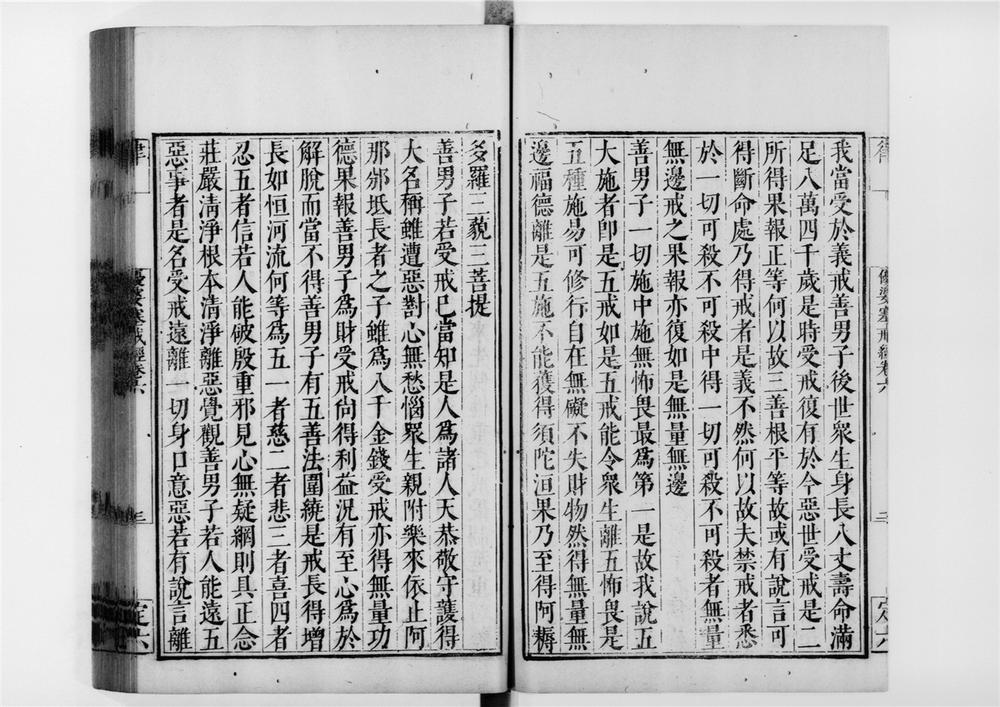 我當受於義戒善男子後世衆生身長八丈壽命滿
足八萬四千歲是時受戒復有於今惡世受戒是二
所得果報正等何以故三善根平等故或有說言可
得斷命處乃得戒者是義不然何以故夫禁戒者悉
於一切可殺不可殺中得一切可殺不可殺者無量
無邊戒之果報亦復如是無量無邊
善男子一切施中施無怖畏最爲第一是故我說五
大施者卽是五戒如是五戒能令衆生離五怖畏是
五種施易可修行自在無礙不失財物然得無量無
邊福德離是五施不能獲得須陀洹果乃至得阿耨
多羅三藐三菩提
善男子若受戒已當知是人爲諸人天恭敬守護得
大名稱雖遭惡對心無愁惱衆生親附樂來依止阿
那邠坻長者之子雖爲八千金錢受戒亦得無量功
德果報善男子爲財受戒尙得利益況有至心爲於
解脫而當不得善男子有五善法圍繞是戒長得增
長如恒河流何等爲五一者慈二者悲三者喜四者
忍五者信若人能破殷重邪見心無疑網則具正念
莊嚴淸淨根本淸淨離惡覺觀善男子若人能遠五
惡事者是名受戒遠離一切身口意惡若有說言離
優婆塞戒經卷六
三
定六